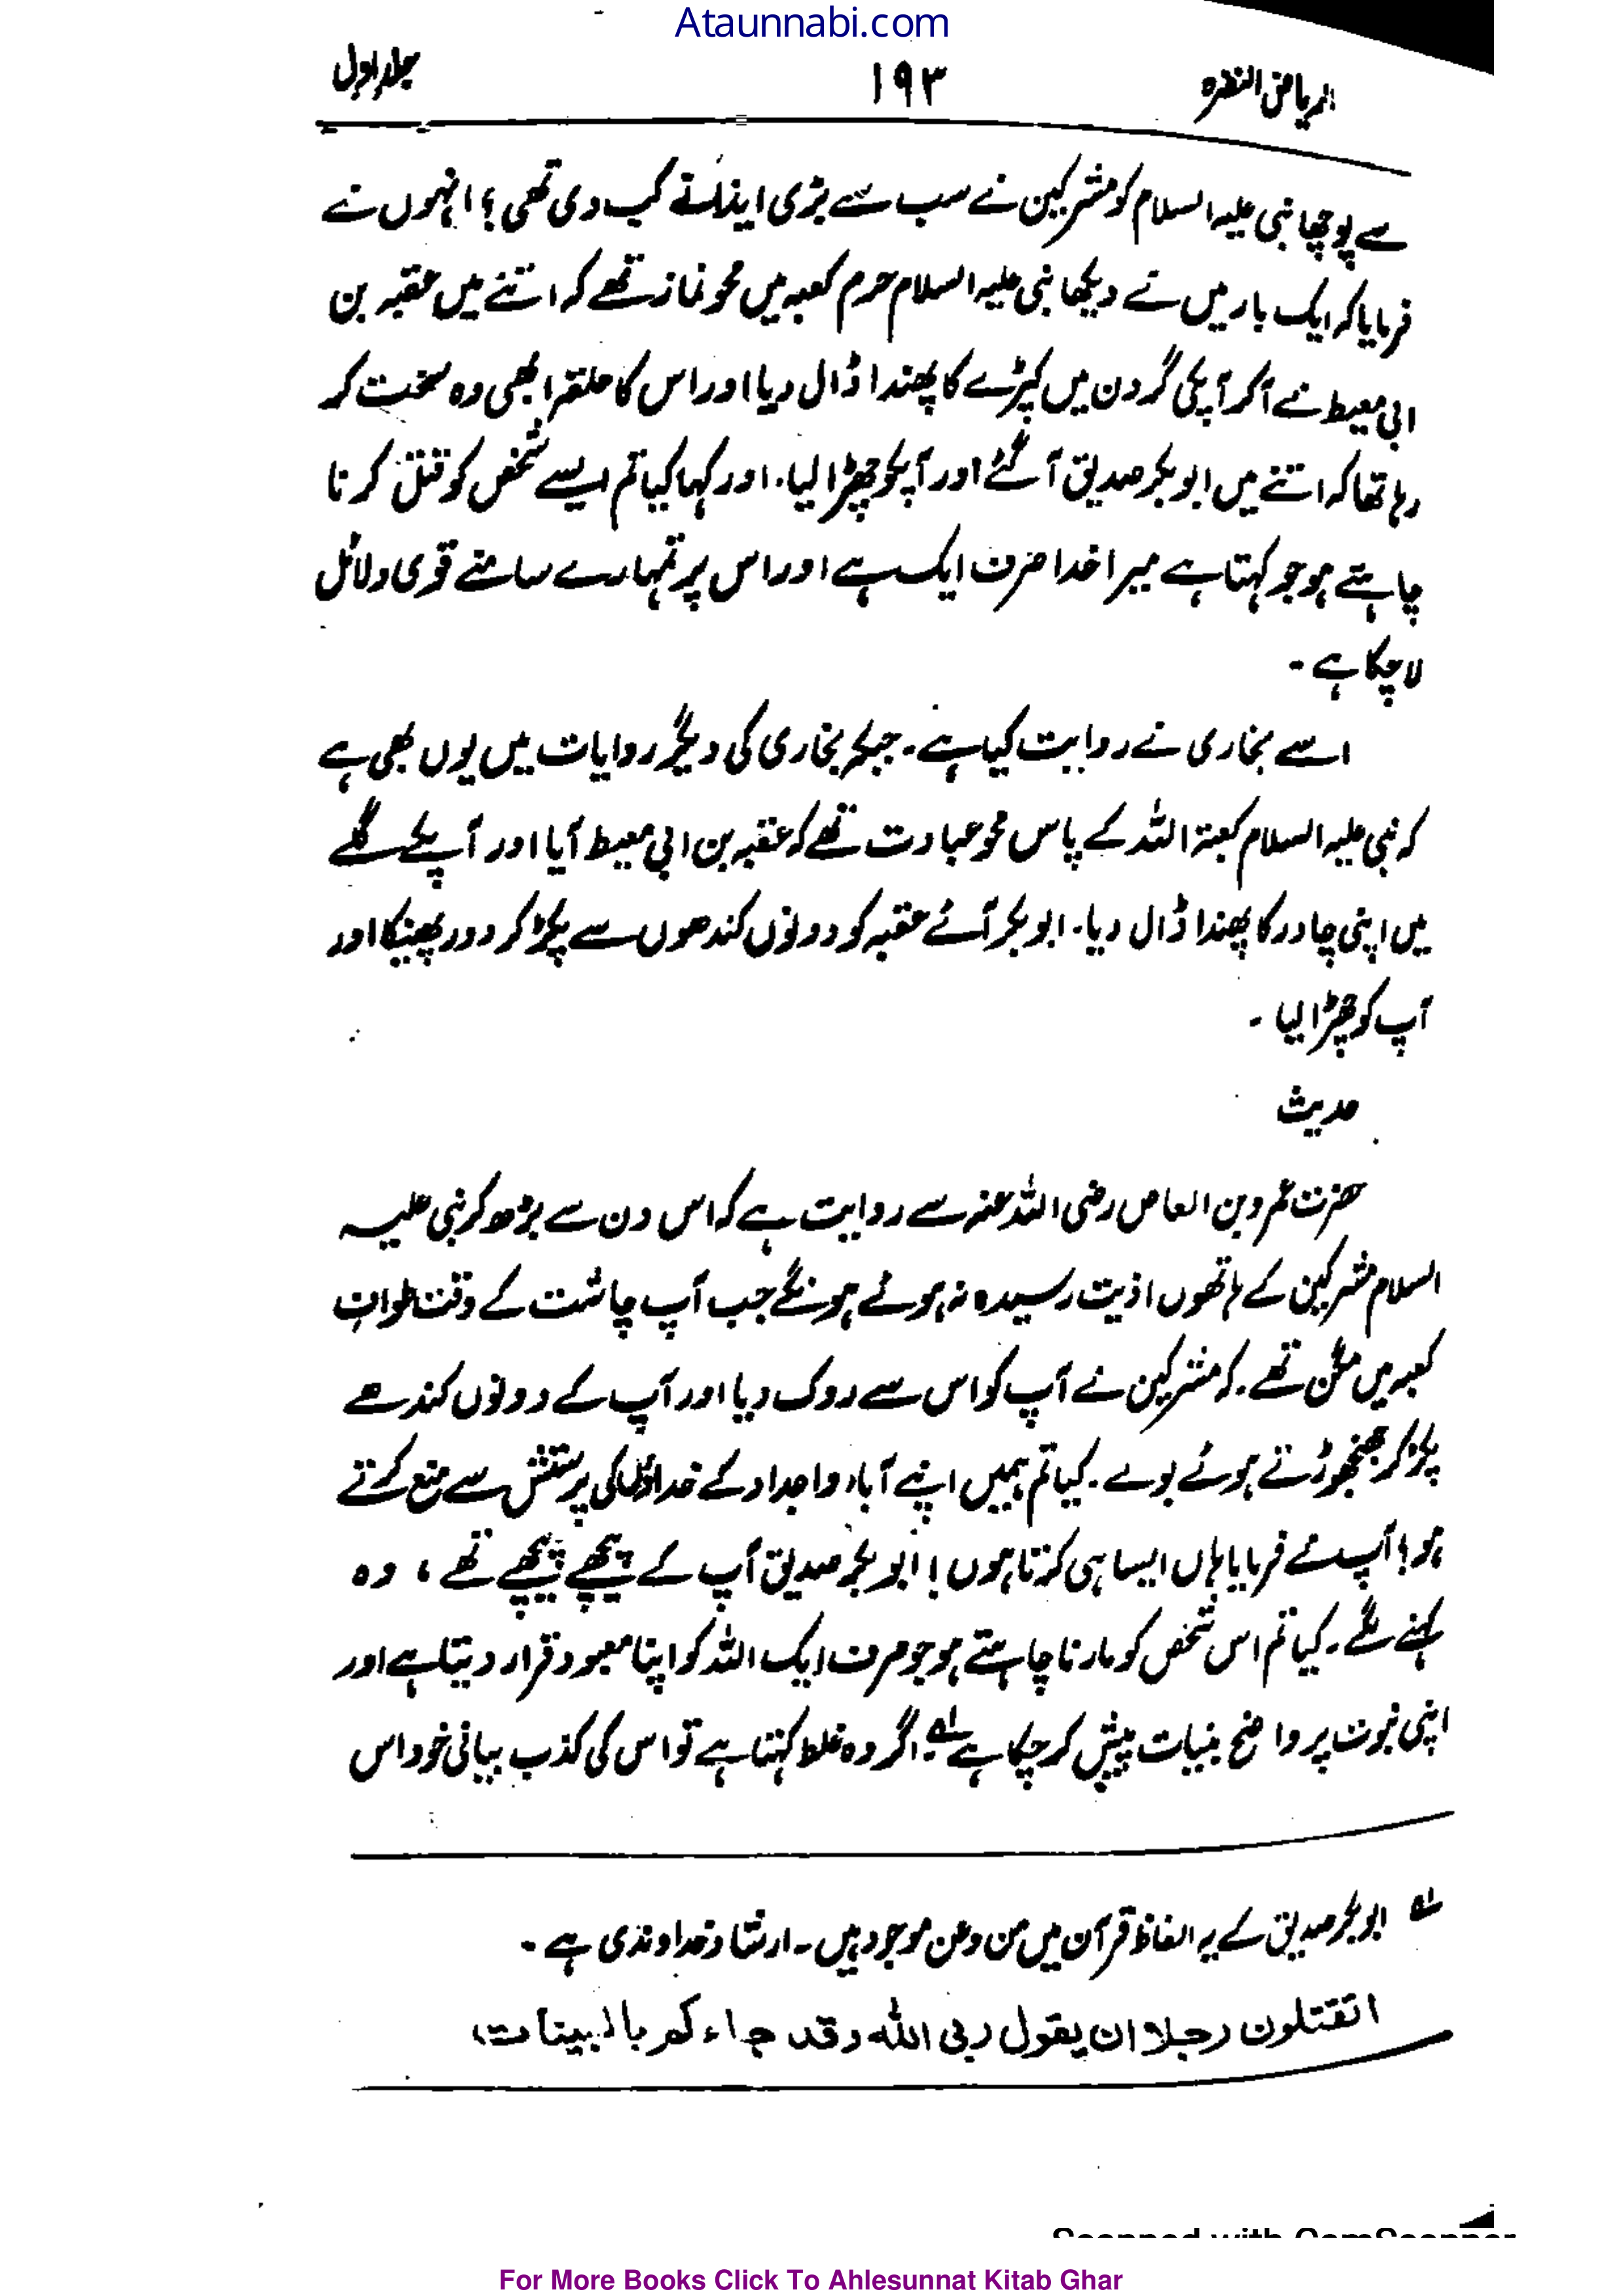 Ataunnabi.com
الریاض النضرہ ۱۹۳ جلد اول
سے پوچھا نبی علیہ السلام کو مشرکین نے سب سے بڑی ایذا کب دی تھی ؟ انہوں نے
فرمایا کہ ایک بار میں نے دیکھا نبی علیہ السلام حرم کعبہ میں محو نماز تھے کہ اتنے میں عقبہ بن
ابی معیط نے آکر آپکی گردن میں کپڑے کا پھندا ڈال دیا اور اس کا حلقہ ابھی وہ سخت کر
رہا تھا کہ اتنے میں ابوبکر صدیق آ گئے اور آپکو چھڑا لیا۔ اور کہا کیا تم ایسے شخص کو قتل کرنا
چاہتے ہو جو کہتا ہے میرا خدا صرف ایک ہے اور اس پر تمہارے سامنے قوی دلائل
لا چکا ہے ۔
اسے بخاری نے روایت کیا ہے ۔ جبکہ بخاری کی دیگر روایات میں یوں بھی ہے
کہ نبی علیہ السلام کعبۃ اللہ کے پاس محو عبادت تھے کہ عقبہ بن ابی معیط آیا اور آپکے گلے
میں اپنی چادر کا پھندا ڈال دیا۔ ابوبکر آئے عقبہ کو دونوں کندھوں سے پکڑ کر دور پھینکا اور
آپ کو چھڑا لیا ۔
حدیث
حضرت عمرو بن العاص رضی اللہ عنہ سے روایت ہے کہ اس دن سے بڑھ کر نبی علیہ
السلام مشرکین کے ہاتھوں اذیت رسیدہ نہ ہوئے ہونگے جب آپ چاشت کے وقت طوافِ
کعبہ میں مگن تھے ۔ کہ مشرکین نے آپ کو اس سے روک دیا اور آپ کے دونوں کندھے
پکڑ کر جھنجھوڑتے ہوئے بولے ۔ کیا تم ہمیں اپنے آباء واجداد کے خداؤں کی پرستش سے منع کرتے
ہو؟ آپ نے فرمایا ہاں ایسا ہی کرتا ہوں ! ابوبکر صدیق آپ کے پیچھے پیچھے تھے ، وہ
کہنے لگے ۔ کیا تم اس شخص کو مارنا چاہتے ہو جو صرف ایک اللہ کو اپنا معبود قرار دیتا ہے اور
اپنی نبوت پر واضح بنیات پیش کر چکا ہے ؎۱ اگر وہ غلط کہتا ہے تو اس کی کذب بیانی خود اس
؎۱ ابوبکر صدیق کے یہ الفاظ قرآن میں من وعن موجود ہیں ۔ ارشاد خداوندی ہے ۔
اتقتلون رجلا ان یقول ربی اللہ وقد جاءکم بالبینات،
Scanned with CamScanner
For More Books Click To Ahlesunnat Kitab Ghar